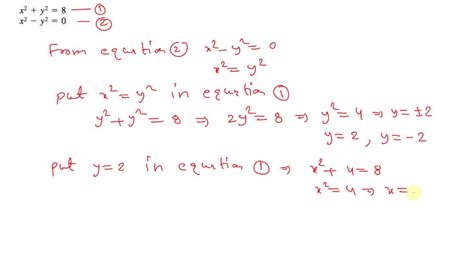 x² + y² = 8 — ①
x² − y² = 0 — ②
From equation ② x² − y² = 0
x² = y²
put x² = y² in equation ①
y² + y² = 8 ⇒ 2y² = 8 ⇒ y² = 4 ⇒ y = ±2
y = 2 , y = −2
put y = 2 in equation ① ⇒ x² + 4 = 8
x² = 4 ⇒ x =